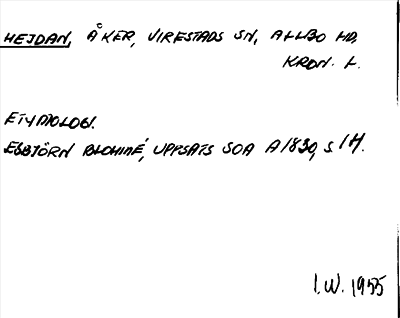 HEJDAN, ÅKER, VIRESTADS SN, ALLBO HD,
KRON. L.
ETYMOLOGI.
ESBJÖRN BLOHMÉ, UPPSATS SOA A1830, S 14.
I.W. 1955